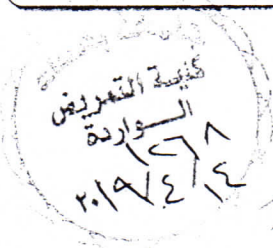 كلية التمريض
الـــواردة
١٢٦٨
٢٠١٩/٤/١٤